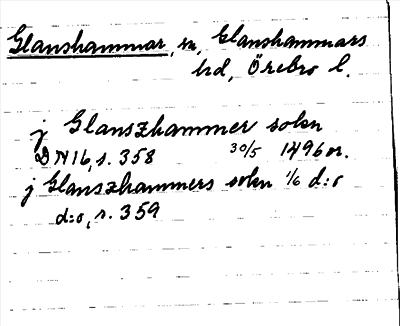 Glanshammar, sn, Glanshammars
hd, Örebro l.
j Glanszhammer sokn
DN 16, s. 358 30/5 1496 or.
j Glanszhammers sokn 1/6 d:o
d:o, s. 359